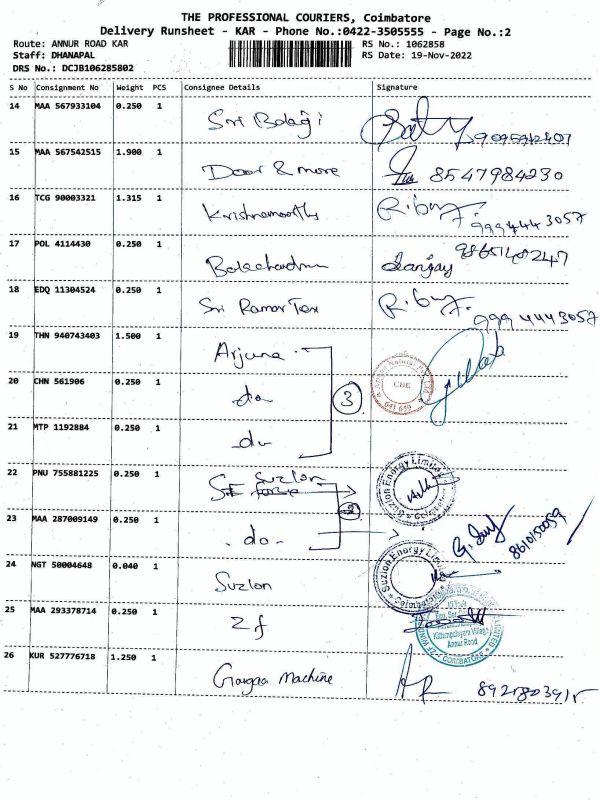 THE PROFESSIONAL COURIERS, Coimbatore
Delivery Runsheet - KAR - Phone No.:0422-3505555 - Page No.:2
Route: ANNUR ROAD KAR
RS No.: 1062858
Staff: DHANAPAL
RS Date: 19-Nov-2022
DRS No.: DCJB106285802
S No Consignment No Weight PCS Consignee Details Signature
14 MAA 567933104 0.250 1 Sri Balaji
15 MAA 567542515 1.900 1 Door & more 8547984230
16 TCG 90003321 1.315 1 Krishnamoorthy 9994443057
17 POL 4114430 0.250 1 Balachadran Sanjay
18 EDQ 11304524 0.250 1 Sri Ramar Tex 9994443057
19 THN 940743403 1.500 1 Arjuna
20 CHN 561906 0.250 1 do 3 CBE 641 659
21 MTP 1192884 0.250 1 do
22 PNU 755881225 0.250 1 Suzlon Suzlon Energy Limited
23 MAA 287009149 0.250 1 do 8610150059
24 NGT 50004648 0.040 1 Suzlon Suzlon Energy Limited
25 MAA 293378714 0.250 1 Zf Kittampalayam Village Annur Road COIMBATORE
26 KUR 527776718 1.250 1 Machine